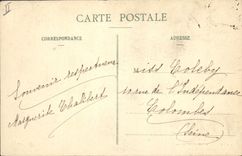 II
CARTE POSTALE
CORRESPONDANCE
ADRESSE
Souvenir respectueux
Marguerite Thalibert
Miss Coleby
10 rue de l'Indépendance
Colombes
(Seine)